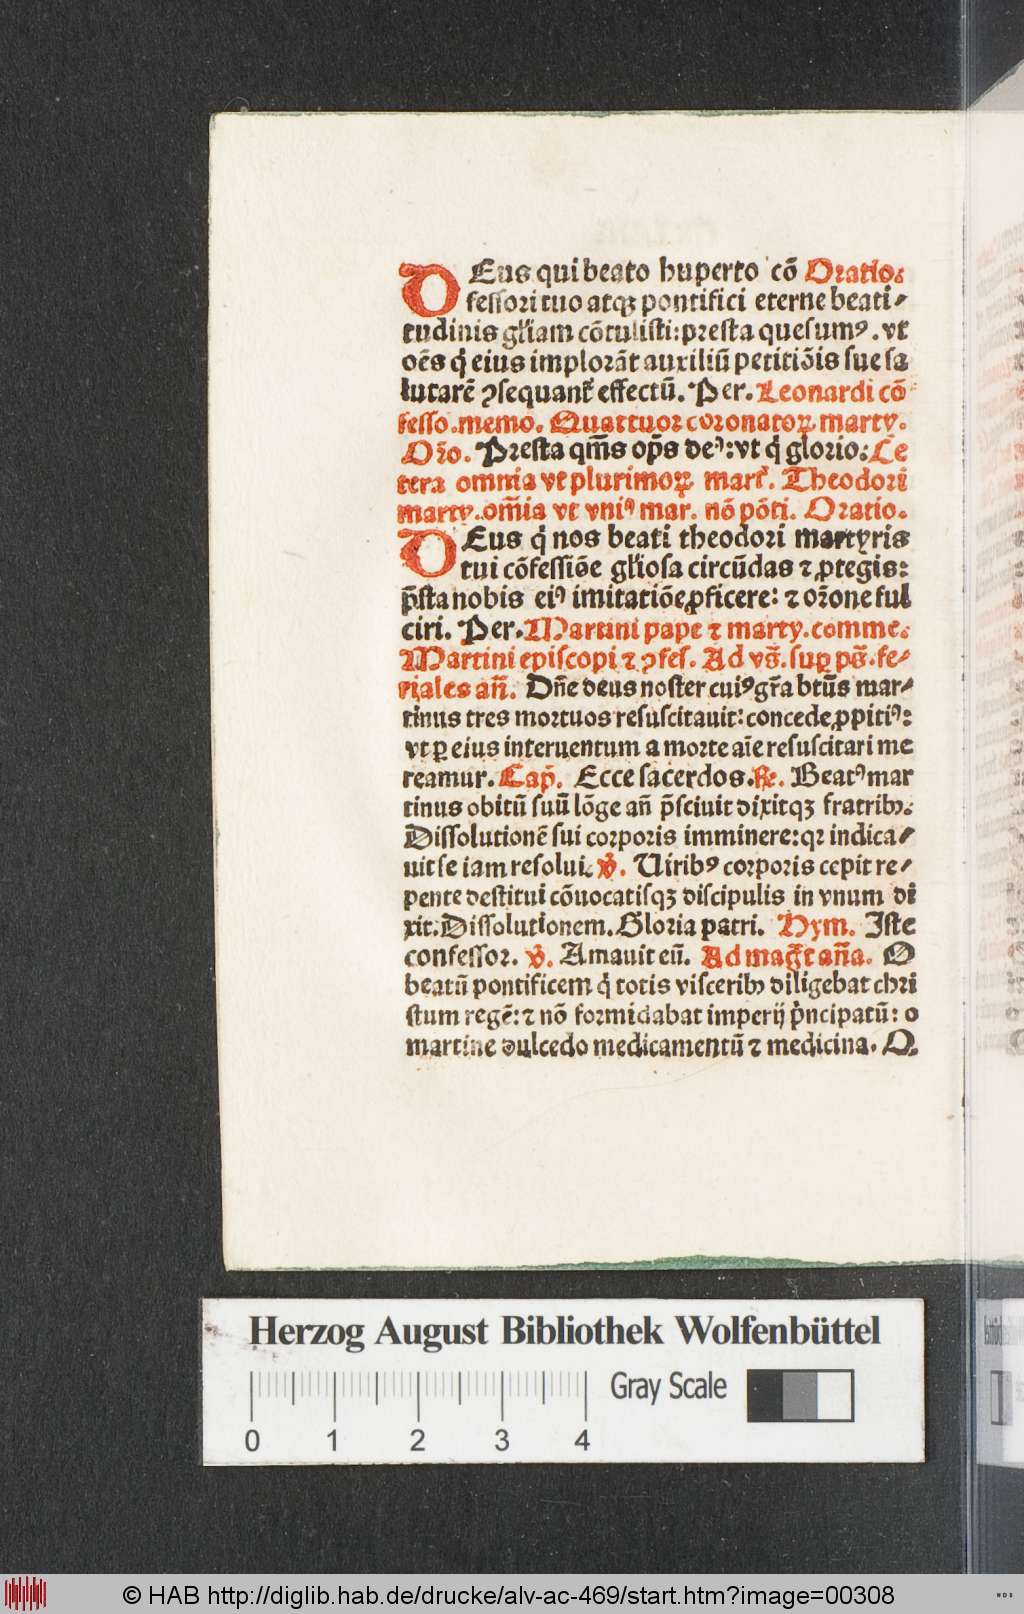 DEus qui beato huperto cō Oratio.
fessori tuo atqꝫ pontifici eterne beati⸗
tudinis gl'iam cōtulisti: presta quesumꝰ. vt
oēs q̇ eius implorāt auxiliū petitiōis sue sa
lutarē ꝯsequant᷑ effectū. Per. Leonardi cō
fesso. memo. Quattuor coronatoꝝ marty.
Oꝛ̄o. Presta qm̄s op̄s deꝰ: vt q̇ glorio: Ce
tera omnia vt plurimoꝝ mart᷑. Theodori
marty. om̄ia vt vniꝰ mar. nō pōti. Oratio.
DEus q̇ nos beati theodori martyris
tui cōfessiōe gl'iosa circūdas ⁊ ꝓtegis:
p̄sta nobis eiꝰ imitatiōe ꝓficere: ⁊ oꝛ̄one ful
ciri. Per. Martini pape ⁊ marty. comme.
Martini episcopi ⁊ ꝯfes. Ad vs̄. suꝑ ps̄. fe⸗
riales an̄. Dn̄e deus noster cuiꝰ gr̄a btūs mar⸗
tinus tres mortuos resuscitauit: concede ꝓpitiꝰ:
vt ꝑ eius interuentum a morte aīe resuscitari me
reamur. Cap̄. Ecce sacerdos. ℟. Beatꝰ mar
tinus obitū suū lōge an̄ p̄sciuit dixitqꝫ fratribꝫ.
Dissolutionē sui corporis imminere: qꝛ indica⸗
uit se iam resolui. ℣. Uiribꝰ corporis cepit re⸗
pente destitui cōuocatisqꝫ discipulis in vnum di
xit: Dissolutionem. Gloria patri. Hym. Iste
confessor. ℣. Amauit eū. Ad mag̅t an̄a. O
beatū pontificem q̇ totis visceribꝫ diligebat chri
stum regē: ⁊ nō formidabat imperij pͥncipatū: o
martine dulcedo medicamentū ⁊ medicina. O
Herzog August Bibliothek Wolfenbüttel
Gray Scale
0 1 2 3 4
© HAB http://diglib.hab.de/drucke/alv-ac-469/start.htm?image=00308